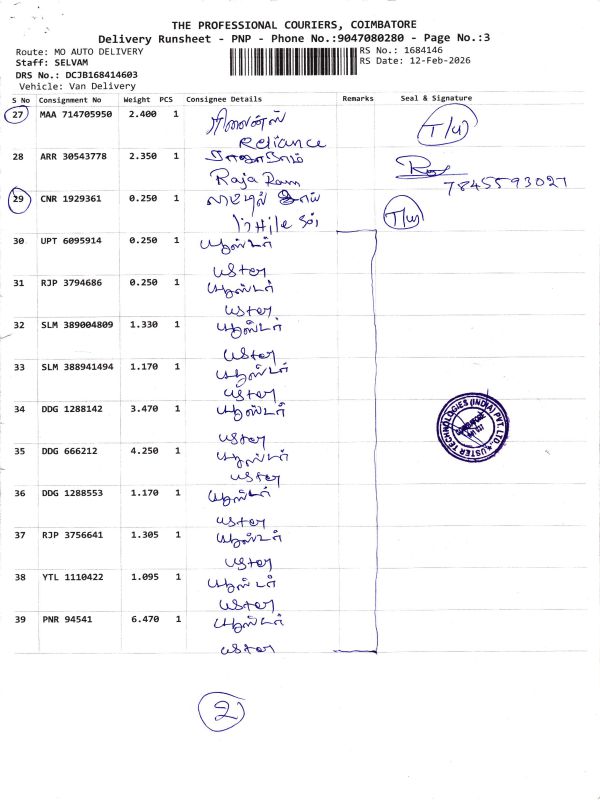 THE PROFESSIONAL COURIERS, COIMBATORE
Delivery Runsheet - PNP - Phone No.:9047080280 - Page No.:3
Route: MO AUTO DELIVERY
RS No.: 1684146
Staff: SELVAM
RS Date: 12-Feb-2026
DRS No.: DCJB168414603
Vehicle: Van Delivery
S No Consignment No Weight PCS Consignee Details Remarks Seal & Signature
27 MAA 714705950 2.400 1 T/u
Reliance
28 ARR 30543778 2.350 1 ராஜாராம்
Raja Ram 7845593027
29 CNR 1929361 0.250 1 T/u
30 UPT 6095914 0.250 1 யுஸ்டர்
Uster
31 RJP 3794686 0.250 1 யுஸ்டர்
Uster
32 SLM 389004809 1.330 1 யுஸ்டர்
Uster
33 SLM 388941494 1.170 1 யுஸ்டர்
Uster
34 DDG 1288142 3.470 1 யுஸ்டர்
Uster
USTER TECHNOLOGIES (INDIA) PVT. LTD.
35 DDG 666212 4.250 1 யுஸ்டர்
Uster
36 DDG 1288553 1.170 1 யுஸ்டர்
Uster
37 RJP 3756641 1.305 1 யுஸ்டர்
Uster
38 YTL 1110422 1.095 1 யுஸ்டர்
Uster
39 PNR 94541 6.470 1 யுஸ்டர்
Uster
2